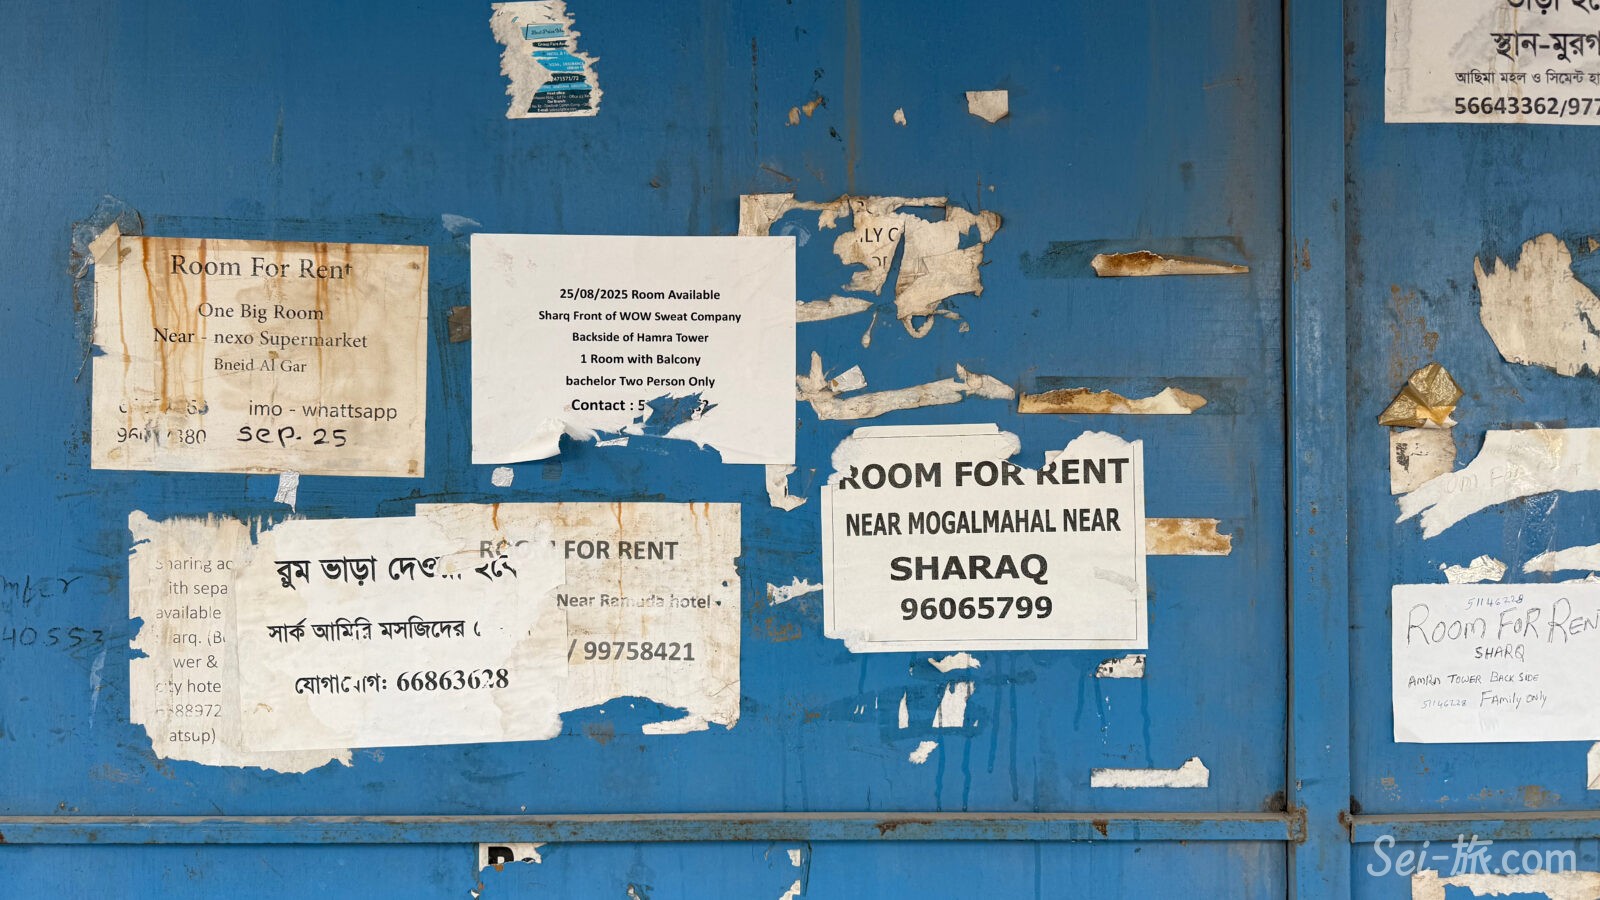 Best Price
2471571/72
Head office
Our Branch:
Room For Rent
One Big Room
Near - nexo Supermarket
Bneid Al Gar
imo - whattsapp
sep. 25
25/08/2025 Room Available
Sharq Front of WOW Sweat Company
Backside of Hamra Tower
1 Room with Balcony
bachelor Two Person Only
Contact : 5
LY C
haring ac
ith sepa
available
arq. (B
wer &
ty hote
88972
atsup)
রুম ভাড়া দেও
সার্ক আমিরি মসজিদের
যোগাযোগ: 66863628
ROOM FOR RENT
Near Ramada hotel
/ 99758421
ROOM FOR RENT
NEAR MOGALMAHAL NEAR
SHARAQ
96065799
40553
স্থান-মুরগ
আছিমা মহল ও সিমেন্ট হা
56643362/977
51146228
ROOM FOR REN
SHARQ
AMRA TOWER BACK SIDE
51146228 Family only
Sei-旅.com